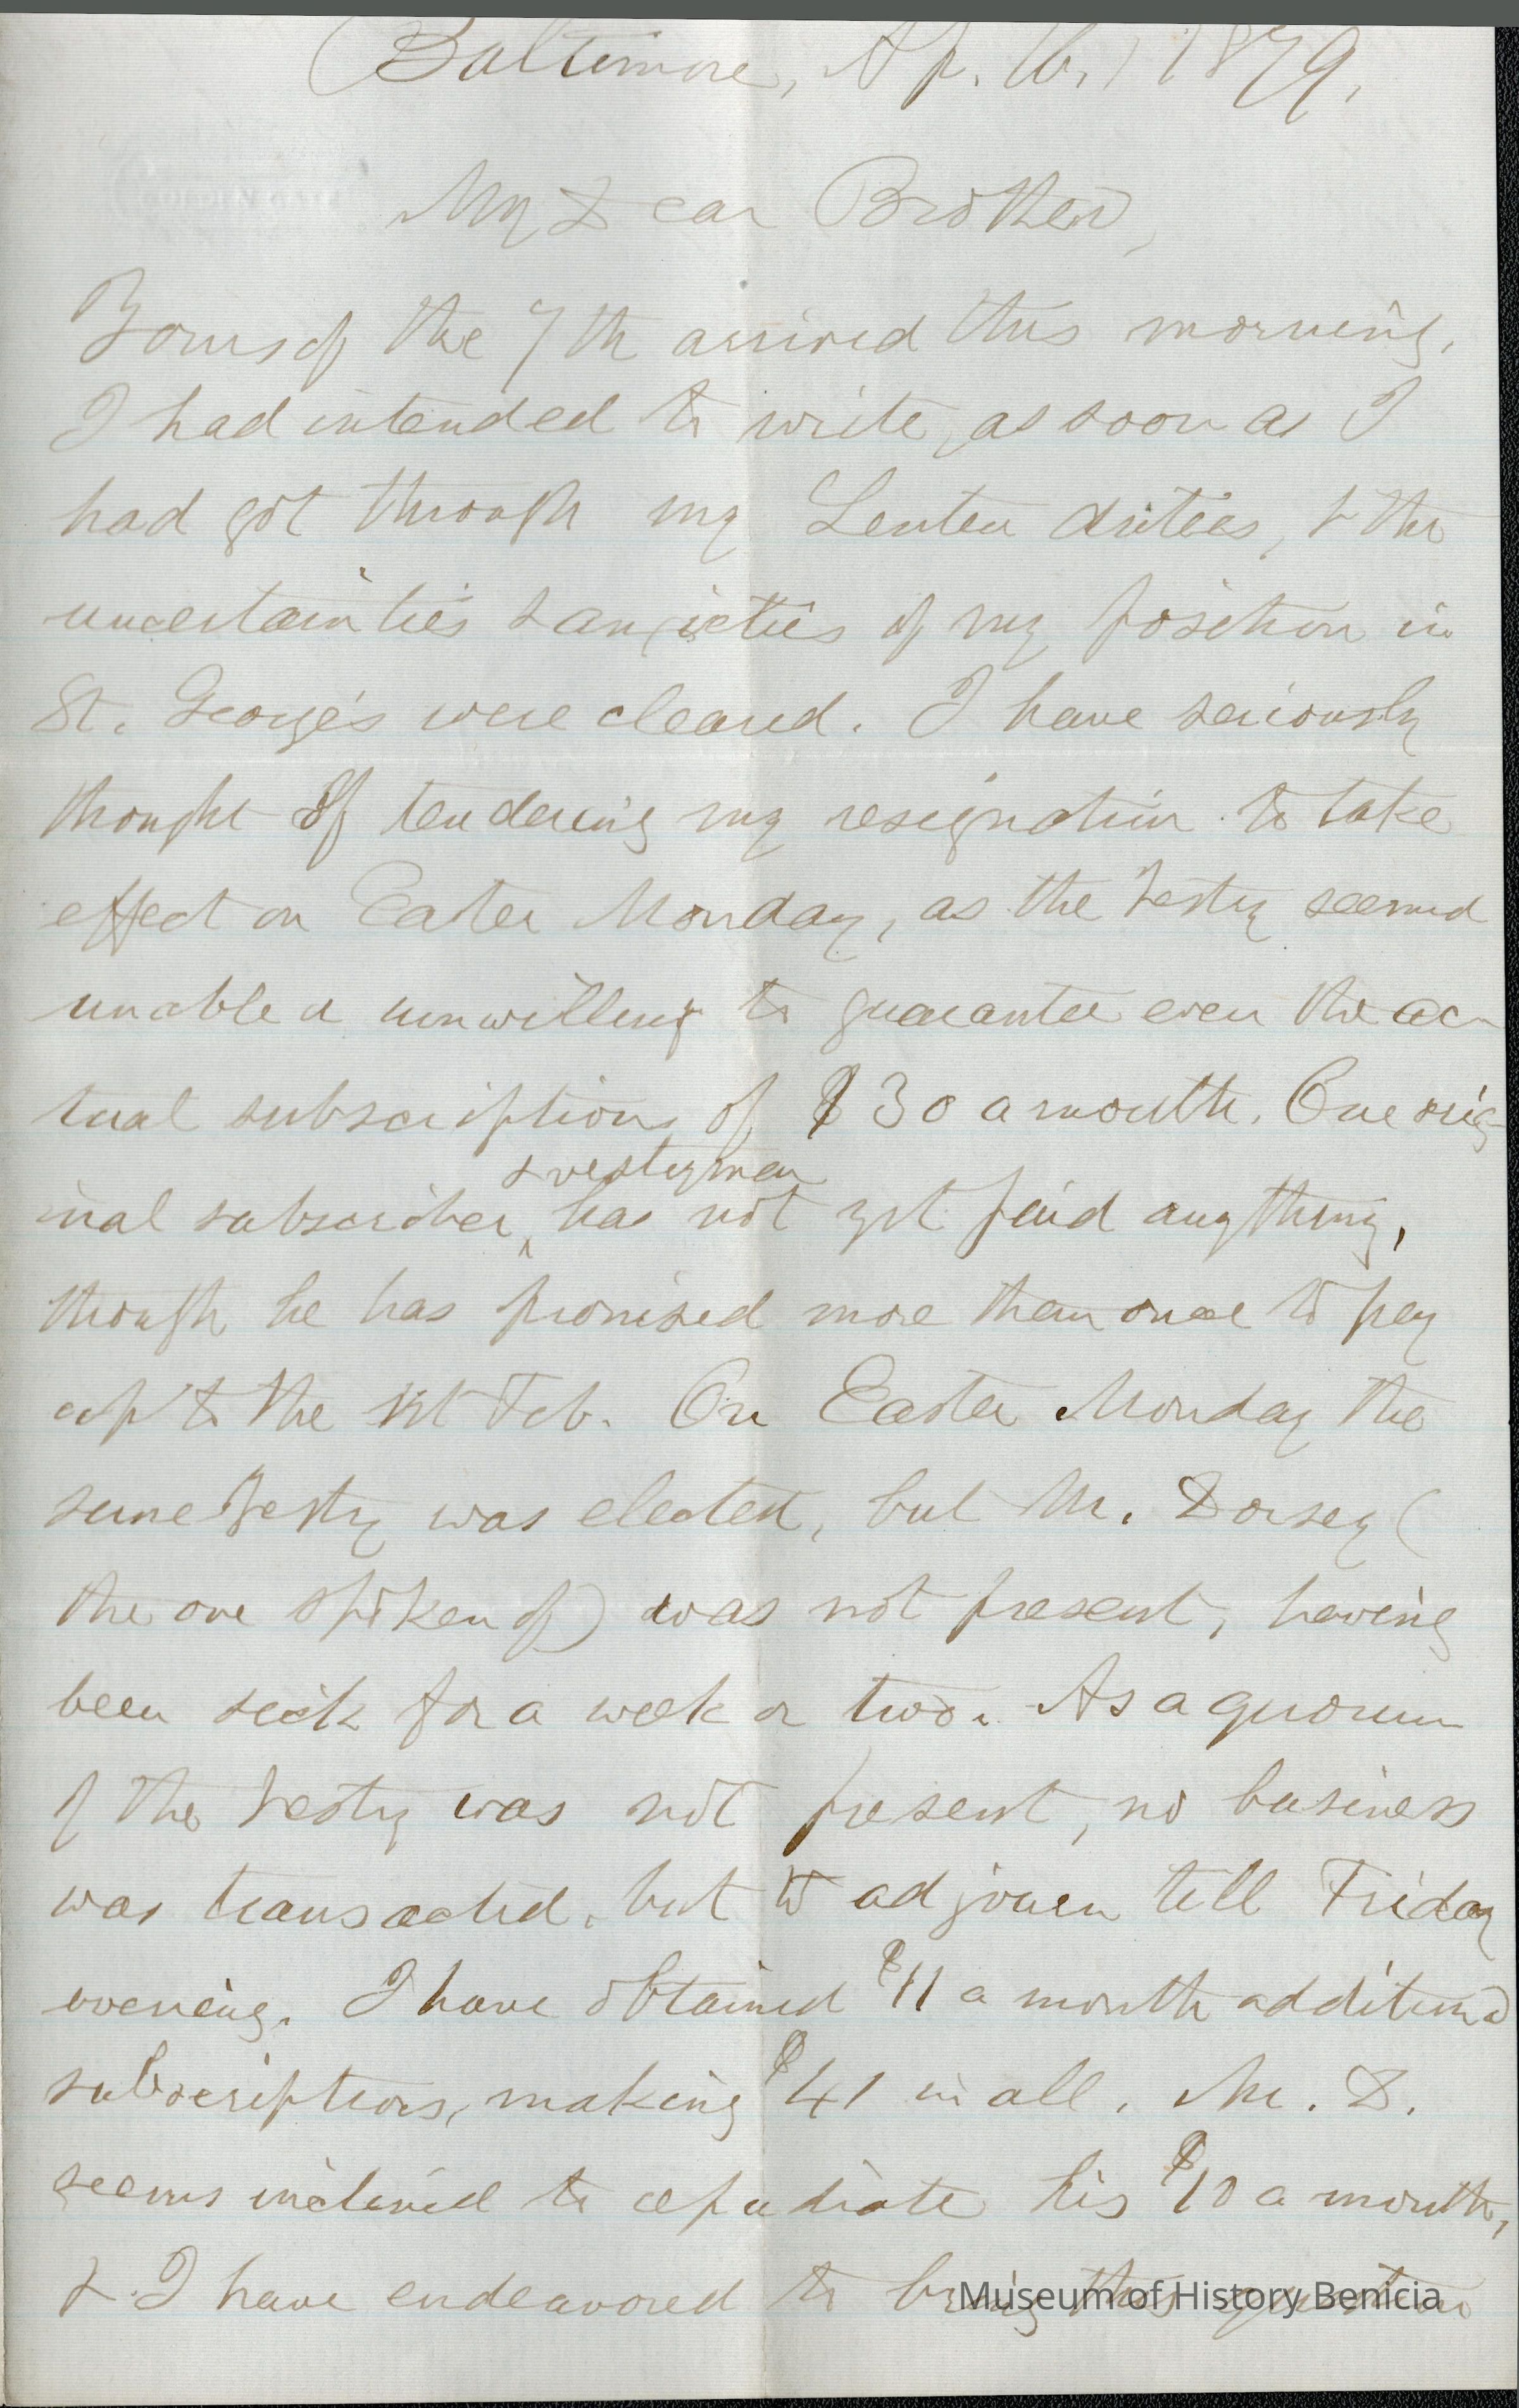 Baltimore, Ap. 16, 1879.
My Dear Brother,
Yours of the 7th arrived this morning.
I had intended to write, as soon as I
had got through my Lenten duties, & the
uncertainties & anxieties of my position in
St. George's were cleared. I have seriously
thought of tendering my resignation to take
effect on Easter Monday, as the Vestry seemed
unable or unwilling to guarantee even the ac-
tual subscriptions of $30 a month. One orig-
& vestryman
inal subscriber, has not yet paid anything,
though he has promised more than once to pay
up to the 1st Feb. On Easter Monday the
same Vestry was elected, but Mr. Dorsey (
the one spoken of) was not present, having
been sick for a week or two. As a quorum
of the Vestry was not present, no business
was transacted, but to adjourn till Friday
evening. I have obtained $11 a month additional
subscriptions, making $41 in all. Mr. D.
seems inclined to repudiate his $10 a month,
& I have endeavored to bring this question
Museum of History Benicia